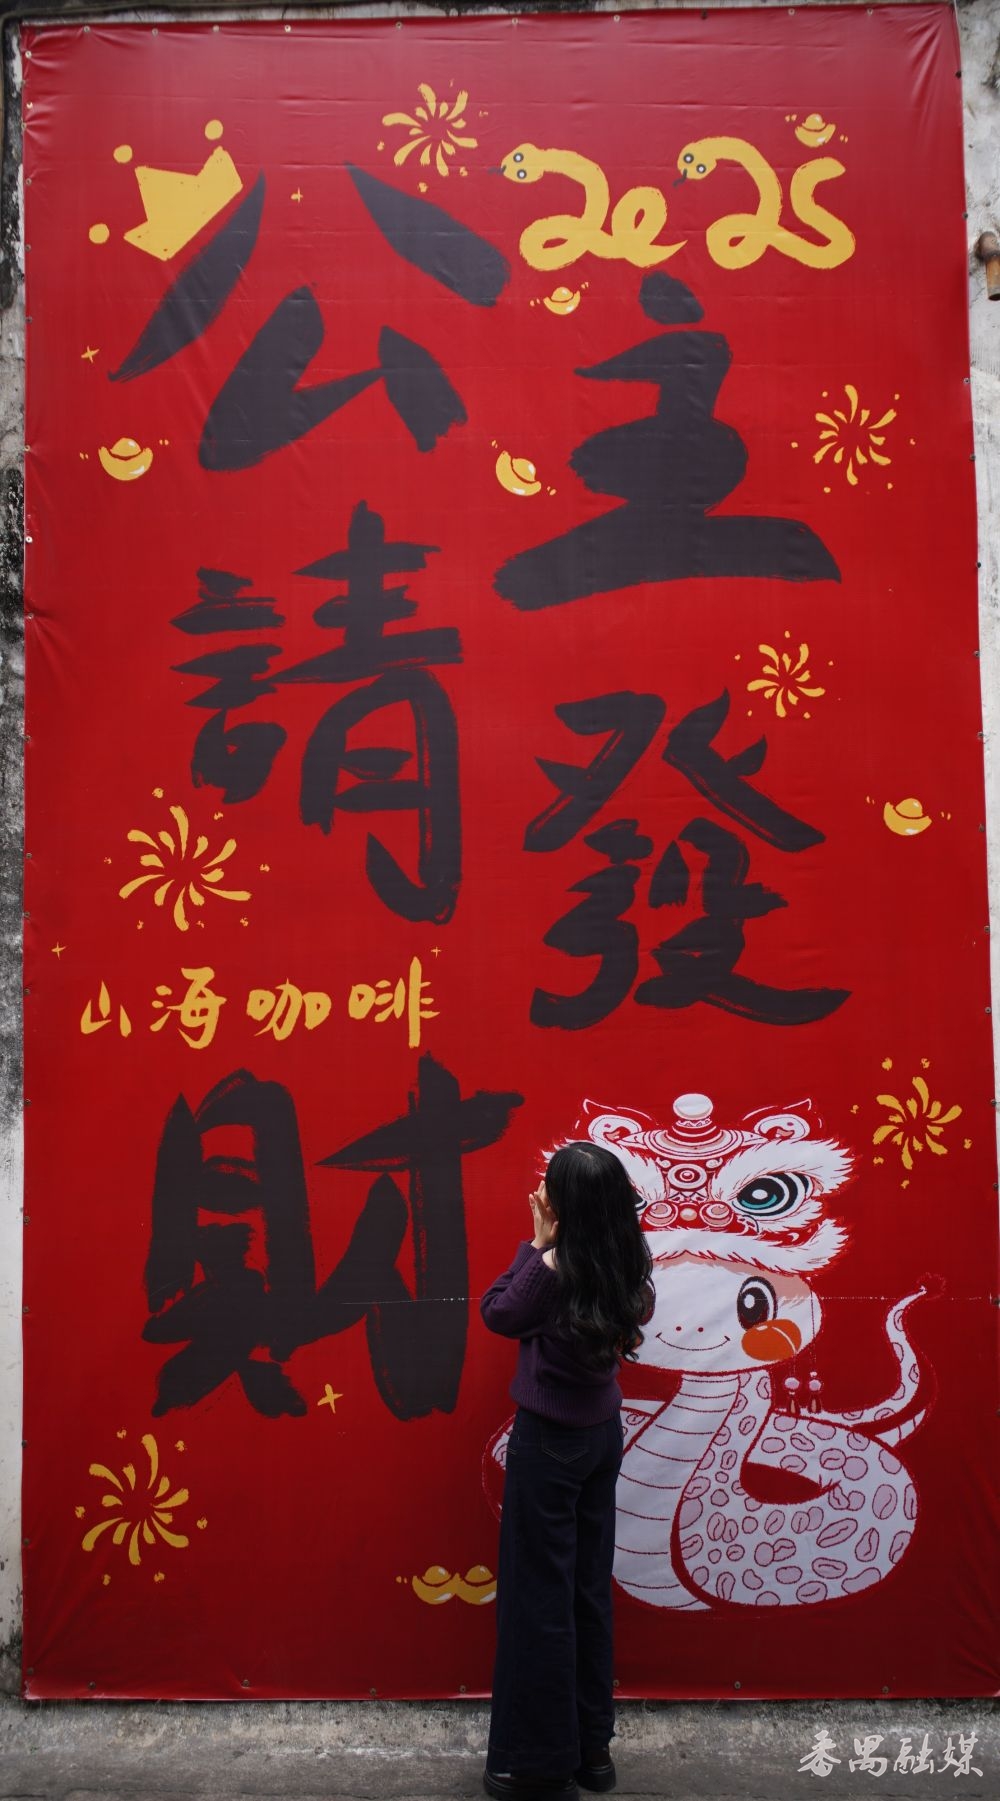 2025
公主
請發
財
山海咖啡
番禺融媒